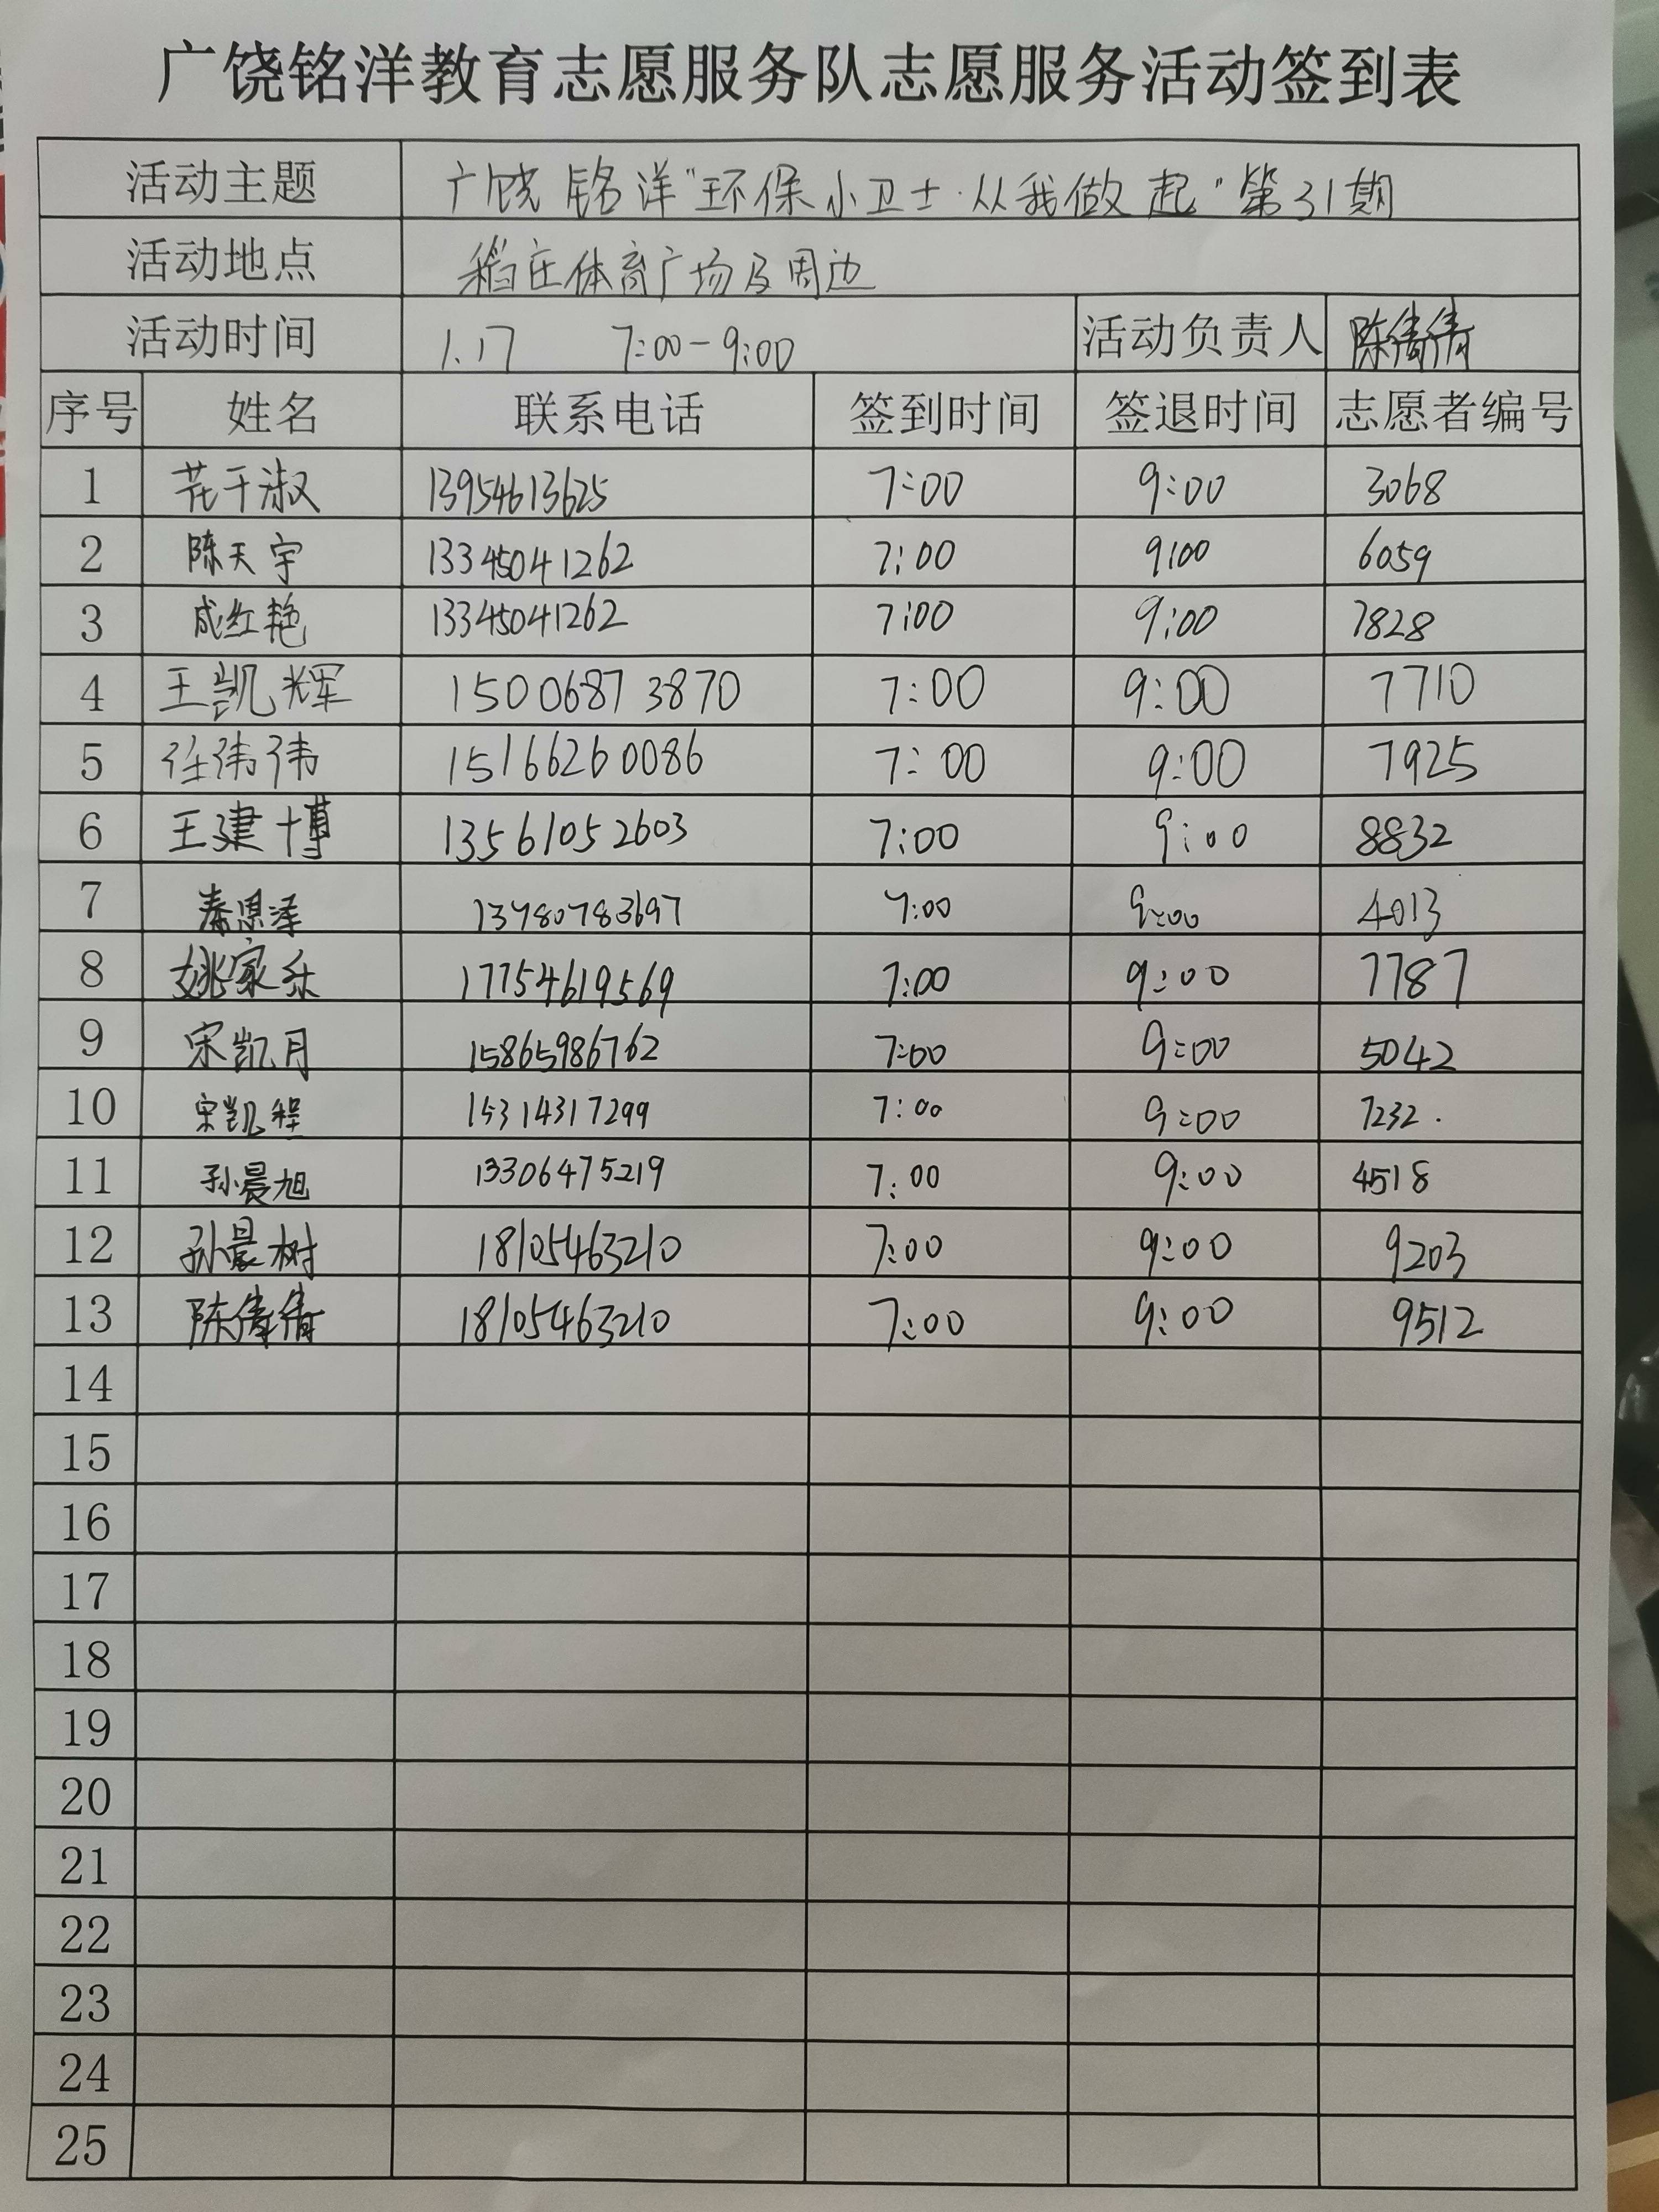 广饶铭洋教育志愿服务队志愿服务活动签到表
活动主题 广饶铭洋"环保小卫士·从我做起"第31期
活动地点 稻庄体育广场及周边
活动时间 1.17 7:00-9:00 活动负责人 陈倩倩
序号 姓名 联系电话 签到时间 签退时间 志愿者编号
1 13954613625 7:00 9:00 3068
2 陈天宇 13345041262 7:00 9:00 6059
3 成红艳 13345041262 7:00 9:00 7828
4 王凯辉 15006873870 7:00 9:00 7710
5 任伟伟 15166260086 7:00 9:00 7925
6 王建博 13561052603 7:00 9:00 8832
7 秦思泽 7:00 9:00 4013
8 姚家乐 17754619569 7:00 9:00 7787
9 宋凯月 15865986762 7:00 9:00 5042
10 宋凯程 15314317299 7:00 9:00 7232.
11 孙晨旭 13306475219 7:00 9:00 4518
12 孙晨树 18105463210 7:00 9:00 9203
13 陈倩倩 18105463210 7:00 9:00 9512
14
15
16
17
18
19
20
21
22
23
24
25